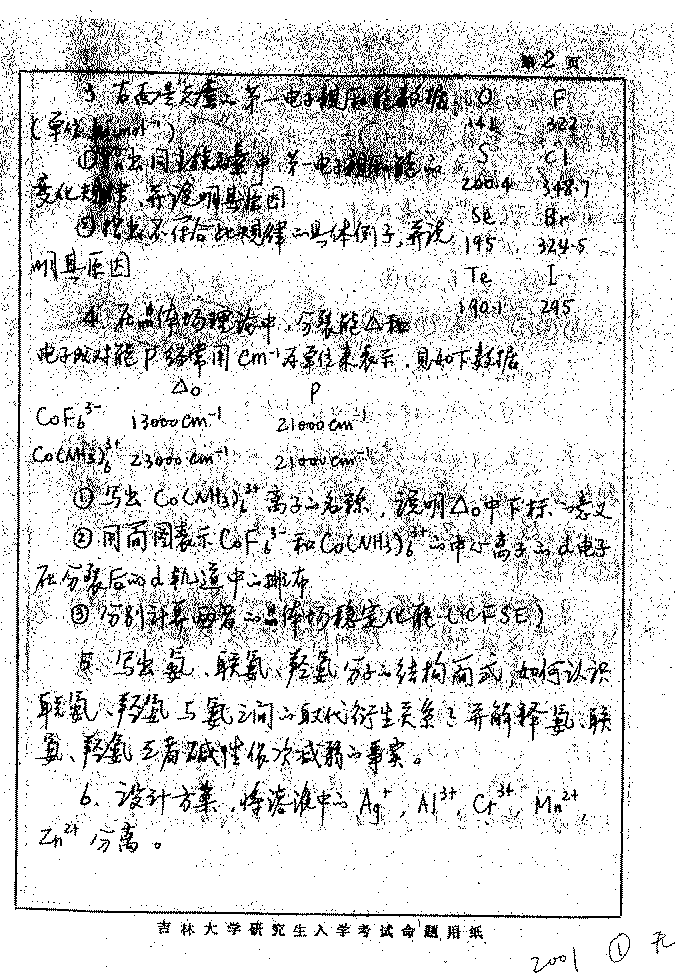 第 2 页
3. 右面是元素的第一电子亲合能数据 O F
(单位 kJ·mol⁻¹) 141 322
①指出同主族元素中,第一电子亲合能的 S Cl
变化规律,并说明其原因 200.4 348.7
②指出不符合此规律的具体例子,并说 Se Br
明其原因 195 324.5
Te I
190.1 295
4. 在晶体场理论中,分裂能△和
电子成对能P经常用cm⁻¹为单位来表示,见如下数据
△o P
CoF₆³⁻ 13000cm⁻¹ 21000cm⁻¹
Co(NH3)₆³⁺ 23000cm⁻¹ 21000cm⁻¹
①写出Co(NH3)₆³⁺离子的名称,说明△o中下标o意义
②用简图表示CoF₆³⁻和Co(NH3)₆³⁺的中心离子的d电子
在分裂后的d轨道中的排布
③分别计算两者的晶体场稳定化能(CFSE)
5. 写出氨、联氨、羟氨分子的结构简式,如何认识
联氨、羟氨与氨之间的取代衍生关系?并解释氨、联
氨、羟氨三者碱性依次减弱的事实。
6. 设计方案,将溶液中的Ag⁺, Al³⁺, Cr³⁺, Mn²⁺,
Zn²⁺分离。
吉林大学研究生入学考试命题用纸
2001 ① 无